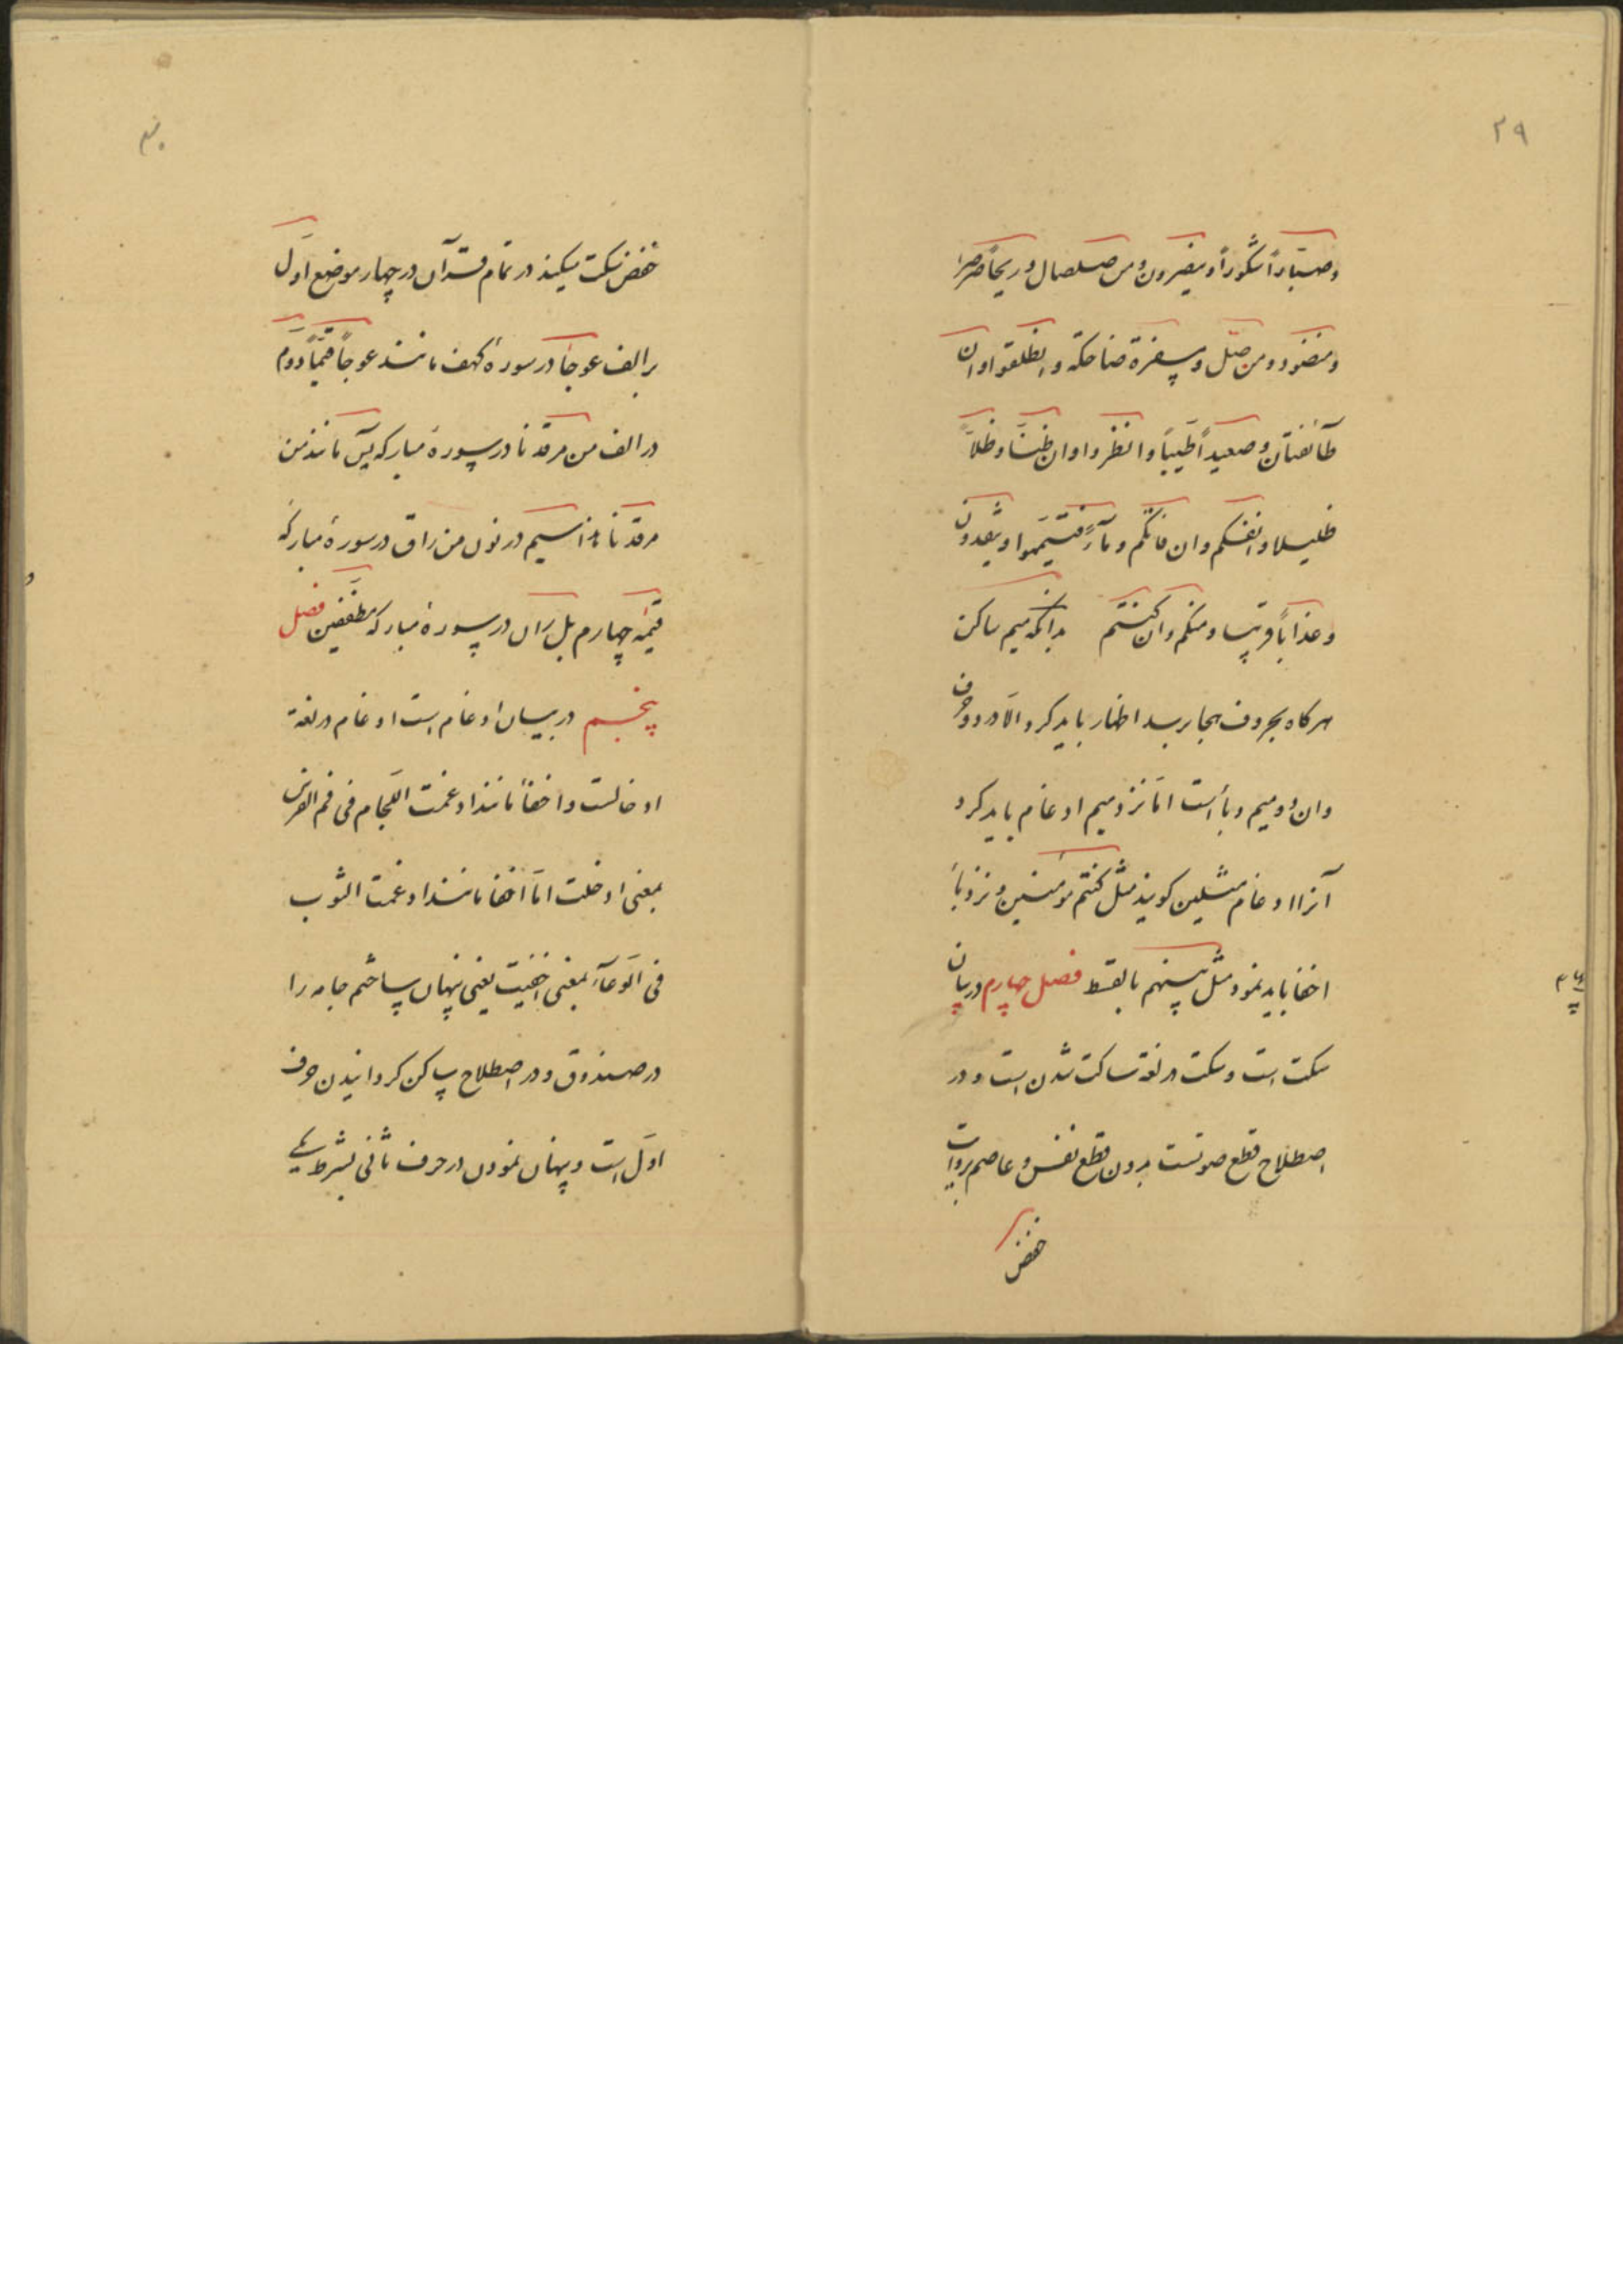 ۲۹
وصبّاراً شکوراً و ینصرون ومن صلصال و ریحاً صرصراً
ومنضود ومن ضلّ ومسفرة ضاحکه و انطلقوا وان
طآئفتان وصعیداً طیّباً وانظروا وان ظنّا وظلاً
ظلیلا وانفسکم وان فاتکم ومآءً فتیمّموا وینقذون
وعذاباً قریبا ومنکم وان کنتم بدانکه میم ساکن
هرکاه بحروف هجا برسد اظهار باید کرد الّا در دو حرف
وان دو میم وبأ است امّا نزد میم ادغام باید کرد
آنرا ادغام مثلین کویند مثل کنتم مؤمنین و نزد بأ
اخفا باید نمود مثل بینهم بالقسط فصل چهارم در بیان
سکت است وسکت در لغة ساکت شدن است و در
اصطلاح قطع صوتست بدون قطع نفس و عاصم بروایت
حفص
۳۰
حفص سکت میکند در تمام قرآن در چهار موضع اوّل
بر الف عوجا در سورهٔ کهف مانند عوجاً قیّماً دوّم
در الف من مرقدنا در سورهٔ مبارکه یس مانند من
مرقدنا هذا سیم در نون من راق در سورهٔ مبارکه
قیمه چهارم بل ران در سورهٔ مبارکه مطفّفین فصل
پنجم در بیان ادغام است ادغام در لغة
ادخالست واخفأ مانند ادغمت اللّجام فی فم الفرس
بمعنی ادخلت امّا اخفا مانند ادغمت الثوب
فی الوعآء بمعنی اخفیت یعنی پنهان ساختم جامه را
در صندوق و در اصطلاح ساکن کردانیدن حرف
اوّل است و پنهان نمودن در حرف ثانی بشرط یکه